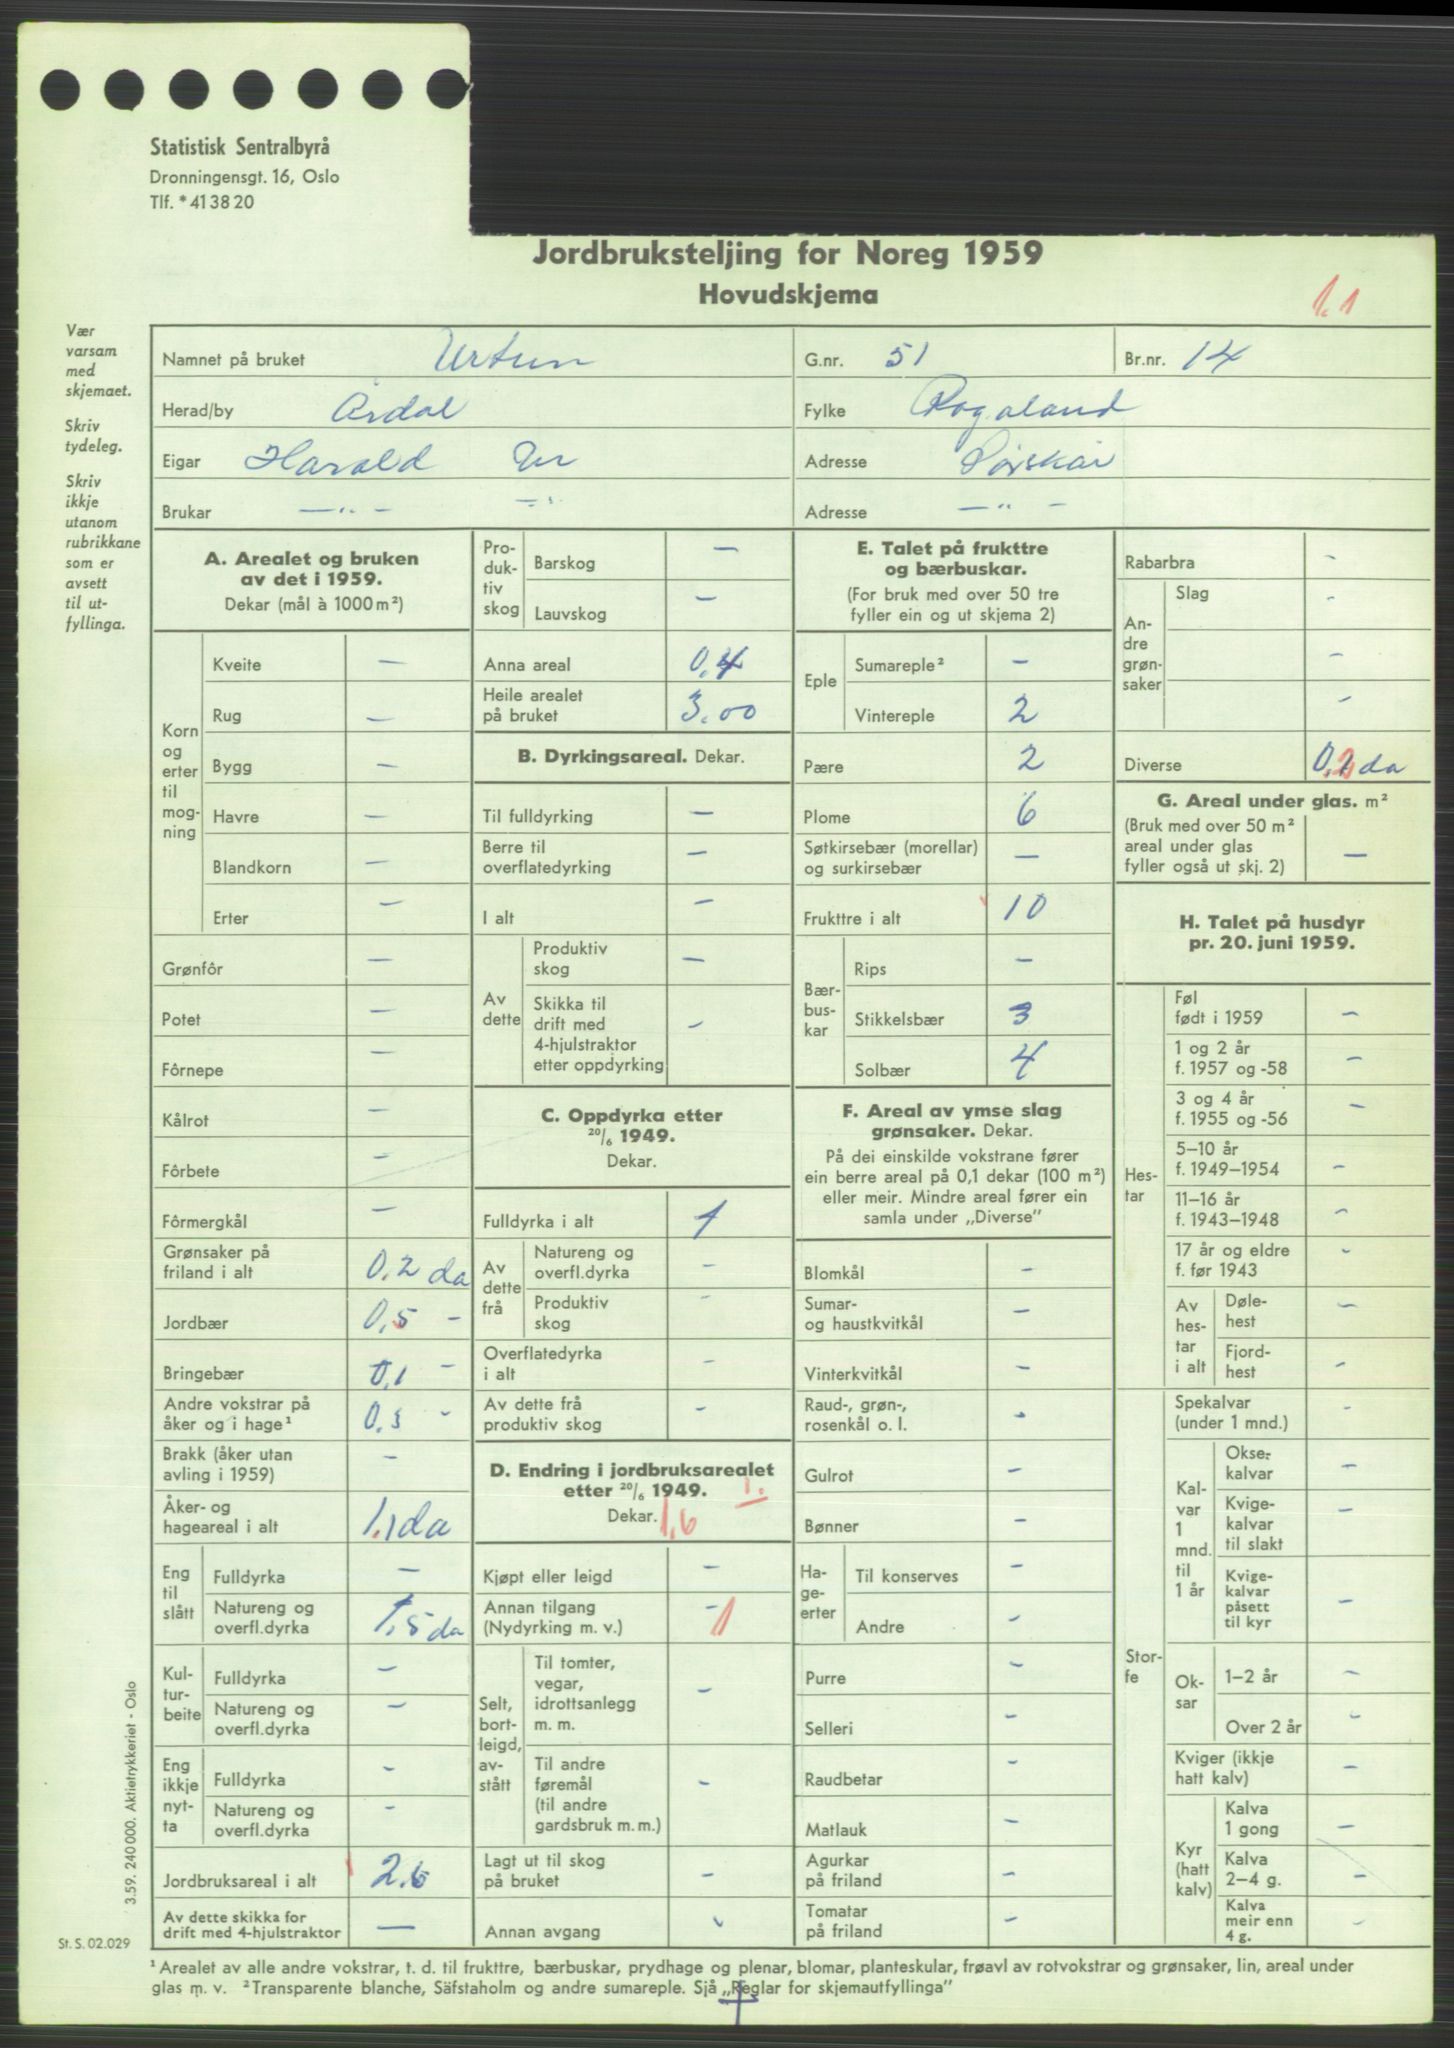 Statistisk Sentralbyrå
Dronningensgt. 16, Oslo
Tlf. *41 38 20
Jordbruksteljing for Noreg 1959
Hovudskjema
1.1
Vær
varsam
med
skjemaet.
Skriv
tydeleg.
Skriv
ikkje
utanom
rubrikkane
som er
avsett
til ut-
fyllinga.
Namnet på bruket Urtun G.nr. 51 Br.nr. 14
Herad/by Årdal Fylke Rogaland
Eigar Harald Ur Adresse
Brukar — „ — — „ — Adresse — „ —
A. Arealet og bruken
av det i 1959.
Dekar (mål à 1000 m²)
Korn
og
erter
til
mog-
ning
Kveite —
Rug —
Bygg —
Havre —
Blandkorn —
Erter —
Grønfôr —
Potet —
Fôrnepe —
Kålrot —
Fôrbete —
Fôrmergkål —
Grønsaker på
friland i alt 0,2 da
Jordbær 0,5 -
Bringebær 0,1 -
Andre vokstrar på
åker og i hage¹ 0,3 -
Brakk (åker utan
avling i 1959) —
Åker- og
hageareal i alt 1,1 da
Eng
til
slått
Fulldyrka —
Natureng og
overfl.dyrka 1,5 da
Kul-
tur-
beite
Fulldyrka —
Natureng og
overfl.dyrka —
Eng
ikkje
nyt-
ta
Fulldyrka —
Natureng og
overfl.dyrka —
Jordbruksareal i alt 2,6
Av dette skikka for
drift med 4-hjulstraktor —
Pro-
duk-
tiv
skog
Barskog —
Lauvskog —
Anna areal 0,4
Heile arealet
på bruket 3,00
B. Dyrkingsareal. Dekar.
Til fulldyrking —
Berre til
overflatedyrking —
I alt —
Av
dette
Produktiv
skog —
Skikka til
drift med
4-hjulstraktor
etter oppdyrking —
C. Oppdyrka etter
20/6 1949.
Dekar.
Fulldyrka i alt 1
Av
dette
frå
Natureng og
overfl.dyrka —
Produktiv
skog —
Overflatedyrka
i alt —
Av dette frå
produktiv skog —
D. Endring i jordbruksarealet
etter 20/6 1949. 1.
Dekar. 1,6
Kjøpt eller leigd —
Annan tilgang
(Nydyrking m. v.) — 1
Selt,
bort-
leigd,
av-
stått
Til tomter,
vegar,
idrottsanlegg
m. m. —
Til andre
føremål
(til andre
gardsbruk m. m.) —
Lagt ut til skog
på bruket —
Annan avgang —
E. Talet på frukttre
og bærbuskar.
(For bruk med over 50 tre
fyller ein og ut skjema 2)
Eple
Sumareple² —
Vintereple 2
Pære 2
Plome 6
Søtkirsebær (morellar)
og surkirsebær —
Frukttre i alt 10
Bær-
bus-
kar
Rips —
Stikkelsbær 3
Solbær 4
F. Areal av ymse slag
grønsaker. Dekar.
På dei einskilde vokstrane fører
ein berre areal på 0,1 dekar (100 m²)
eller meir. Mindre areal fører ein
samla under „Diverse”
Blomkål —
Sumar-
og haustkvitkål —
Vinterkvitkål —
Raud-, grøn-,
rosenkål o. l. —
Gulrot —
Bønner —
Ha-
ge-
erter
Til konserves —
Andre —
Purre —
Selleri —
Raudbetar —
Matlauk —
Agurkar
på friland —
Tomatar
på friland —
Rabarbra —
An-
dre
grøn-
saker
Slag —
—
—
Diverse 0,2 da
G. Areal under glas. m²
(Bruk med over 50 m²
areal under glas
fyller også ut skj. 2) —
H. Talet på husdyr
pr. 20. juni 1959.
Hes-
tar
Føl
født i 1959 —
1 og 2 år
f. 1957 og -58 —
3 og 4 år
f. 1955 og -56 —
5–10 år
f. 1949–1954 —
11–16 år
f. 1943–1948 —
17 år og eldre
f. før 1943 —
Av
hes-
tar
i alt
Døle-
hest —
Fjord-
hest —
Stor-
fe
Spekalvar
(under 1 mnd.) —
Kal-
var
1
mnd.
til
1 år
Okse-
kalvar —
Kvige-
kalvar
til slakt —
Kvige-
kalvar
påsett
til kyr —
Ok-
sar
1–2 år —
Over 2 år —
Kviger (ikkje
hatt kalv) —
Kyr
(hatt
kalv)
Kalva
1 gong —
Kalva
2–4 g. —
Kalva
meir enn
4 g. —
3.59. 240 000. Aktietrykkeriet - Oslo
St. S. 02.029
¹ Arealet av alle andre vokstrar, t. d. til frukttre, bærbuskar, prydhage og plenar, blomar, planteskular, frøavl av rotvokstrar og grønsaker, lin, areal under
glas m. v. ² Transparente blanche, Säfstaholm og andre sumareple. Sjå „Reglar for skjemautfyllinga”